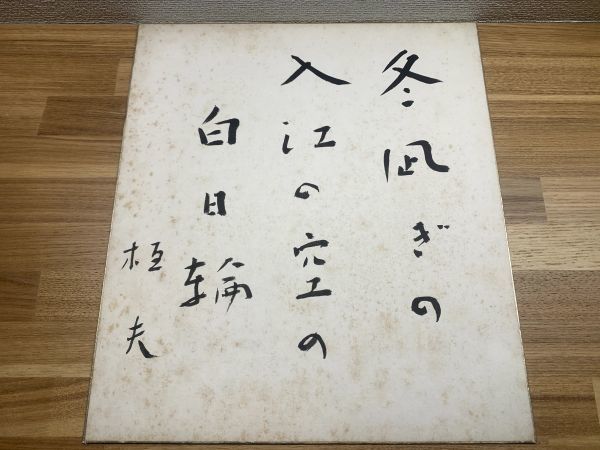 冬凪ぎの
入江の空の
白日輪
桓夫